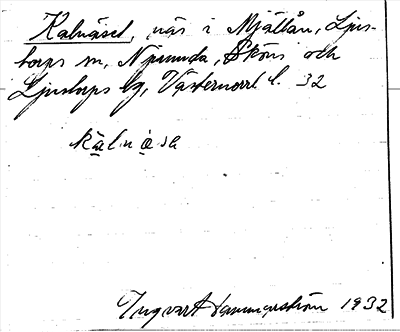 Kalnäset, näs i Mjällån, Ljus-
torps sn, Njurunda, Sköns och
Ljustorps tg, Västernorrl. l. 32
kạlnạ̈sɐ
Ingvart Hammarström 1932